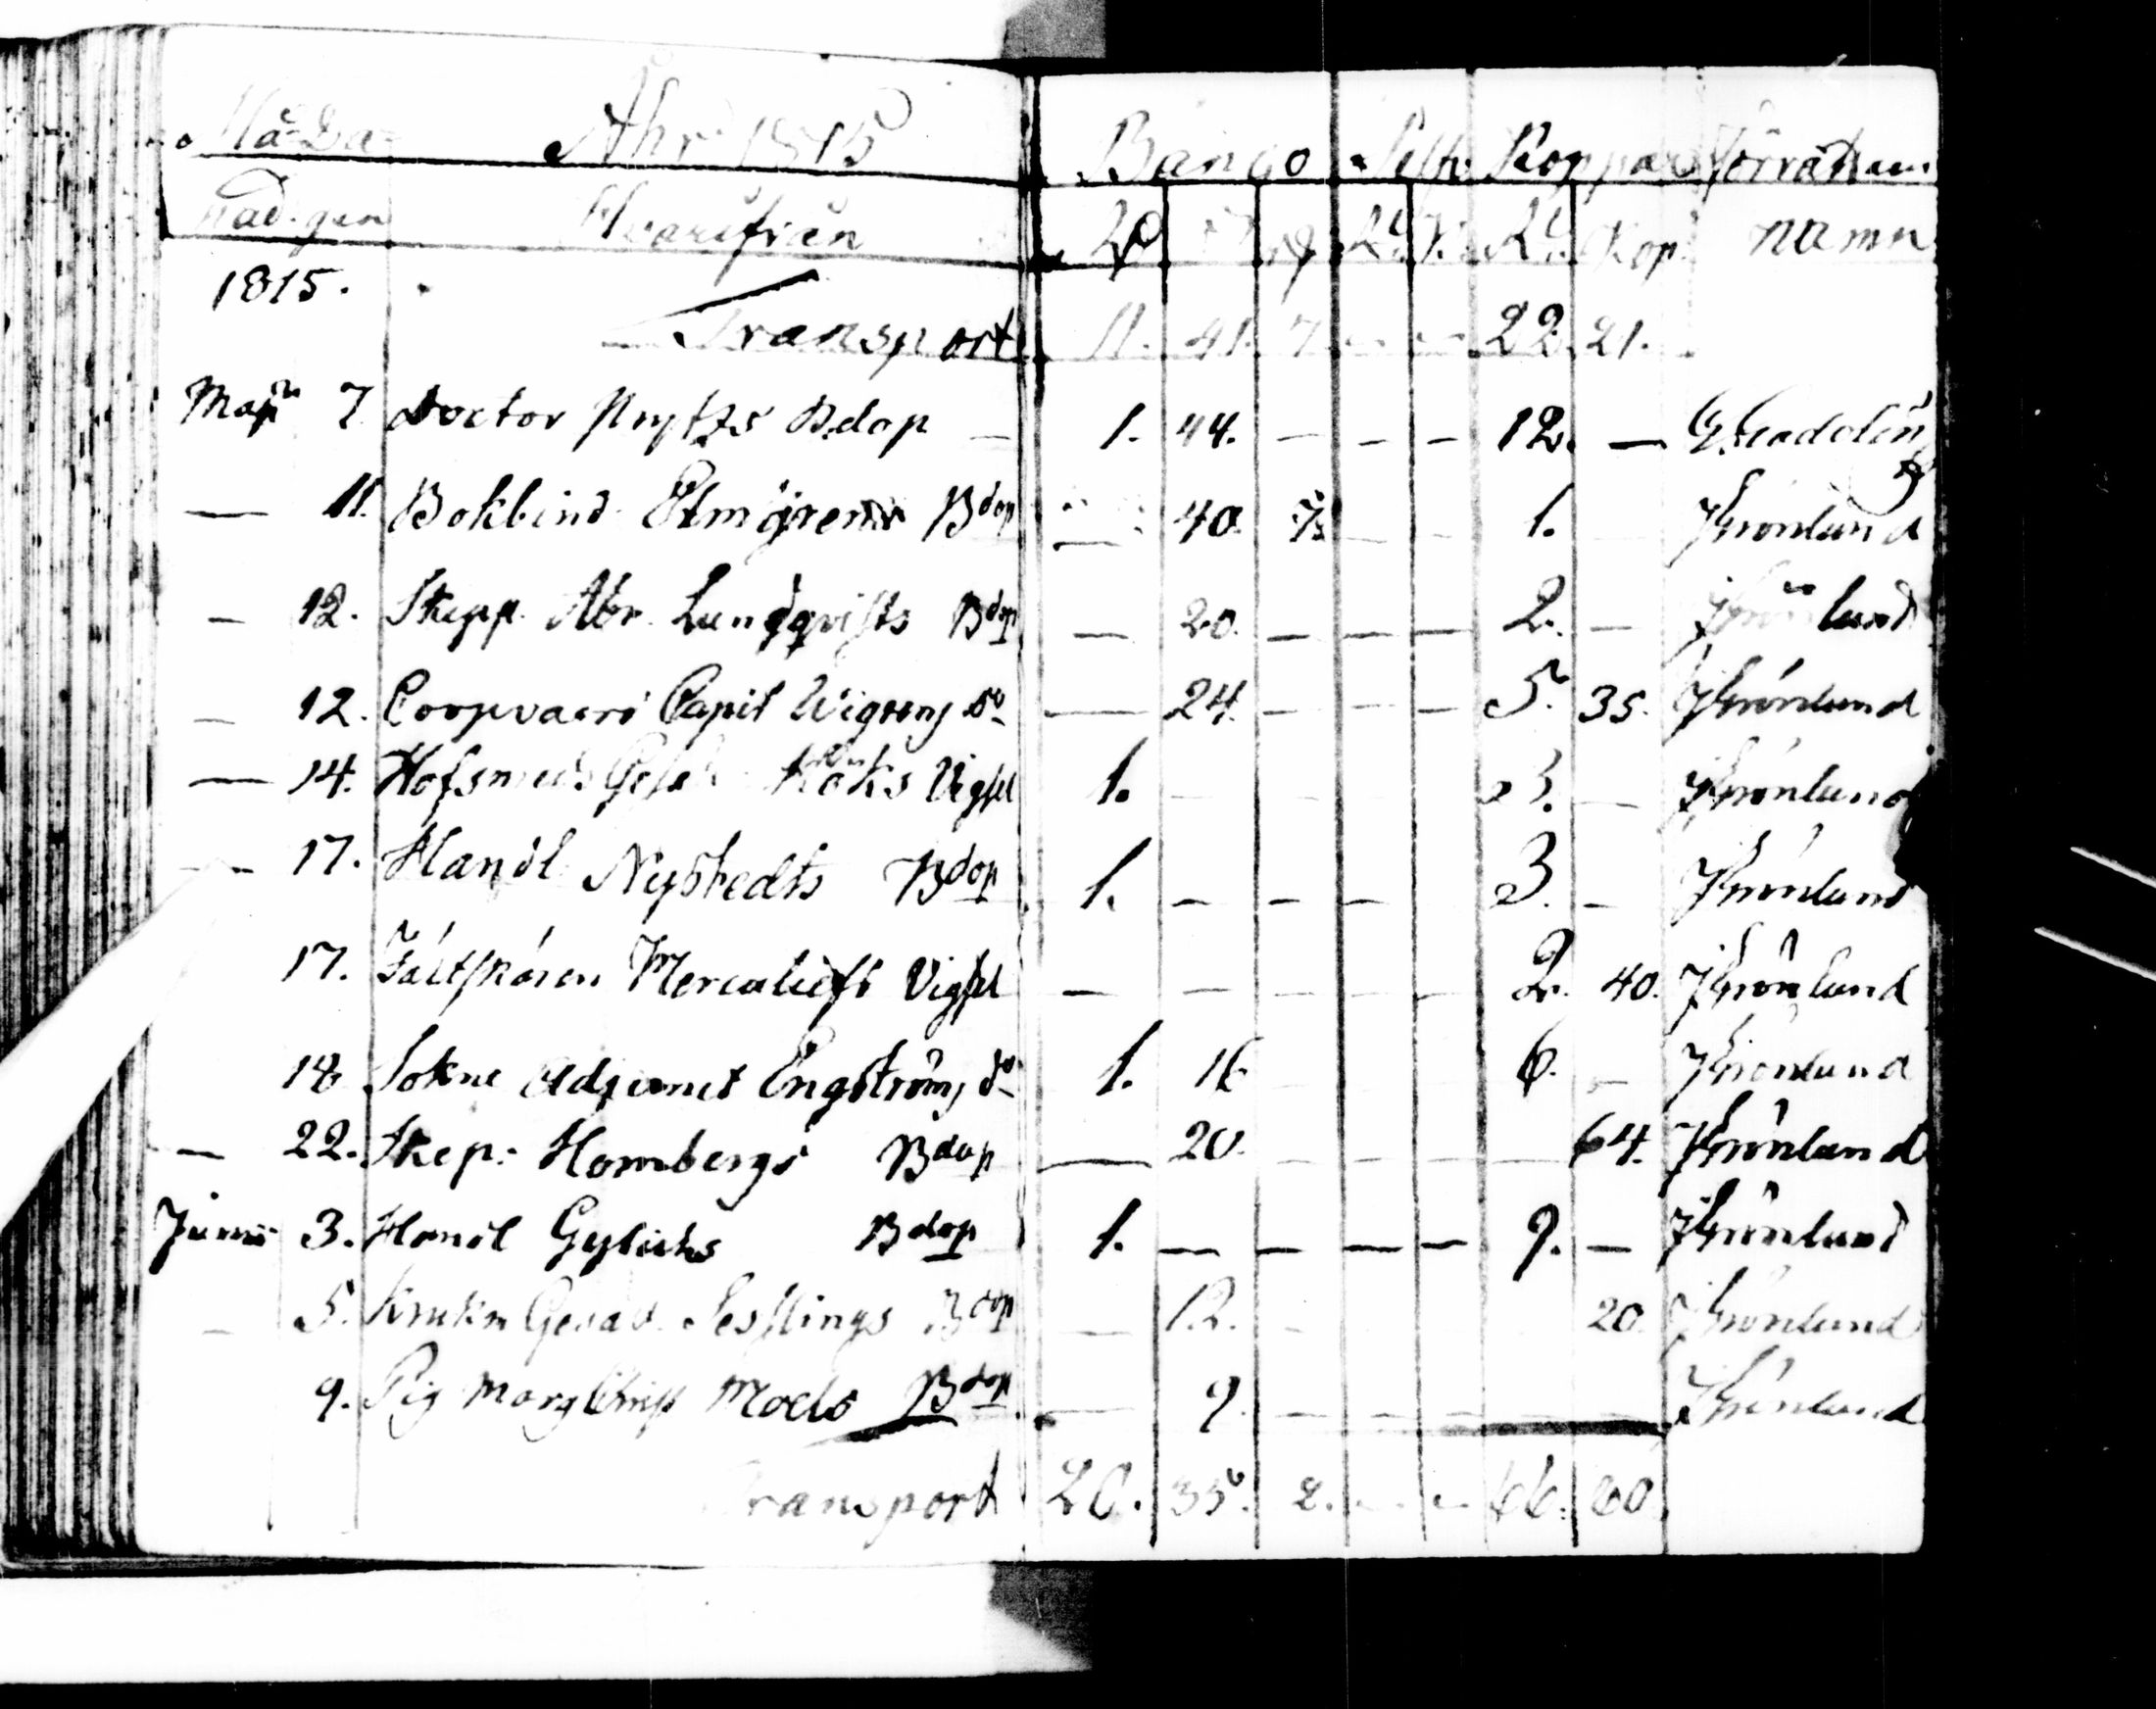 Må= Da= Åhr 1815 Banco Silfr Koppar Förrättarens
nad. gar Hvarifrån Rd R K: R Kop. namn
1815.
Transport 11. 41. 7. — — 22. 21.
Maji 7. Doctor Prytzs Bdop — 1. 44. — — — 12. — G. Gadolin
— 11. Bokbind. Elmgrens Bdop — 40. 7. — — 1. — J Grönlund
— 12. Skepp. Abr. Lundqvists Bdop — 20. — — — 2. — J Grönlund
— 12. Coopvaerd Capit Wigrens do — 24. — — — 5. 35. J Grönlund
— 14. Hofsmed. Koks Vigsel 1. — 3. — J Grönlund
— 17. Handl Nystedts Bdop 1. — — — 3. — J Grönlund
17. Fältskären Vigsel — — — — — 2. 40. J Grönlund
18 Sokne Adjunct Engströms do 1. 16 6. — J Grönlund
— 22. Skep: Hombergs Bdop — 20. — — — — 64. J Grönlund
Junii 3. Handl Gylichs Bdop 1. — — — — 9. — J Grönlund
— 5. Krukm Gesäll Bdop — 12. — 20. J Grönlund
9. Pig Bdop — 9. — — — — — J Grönlund
Transport 20. 35. 2. — — 66. 60.